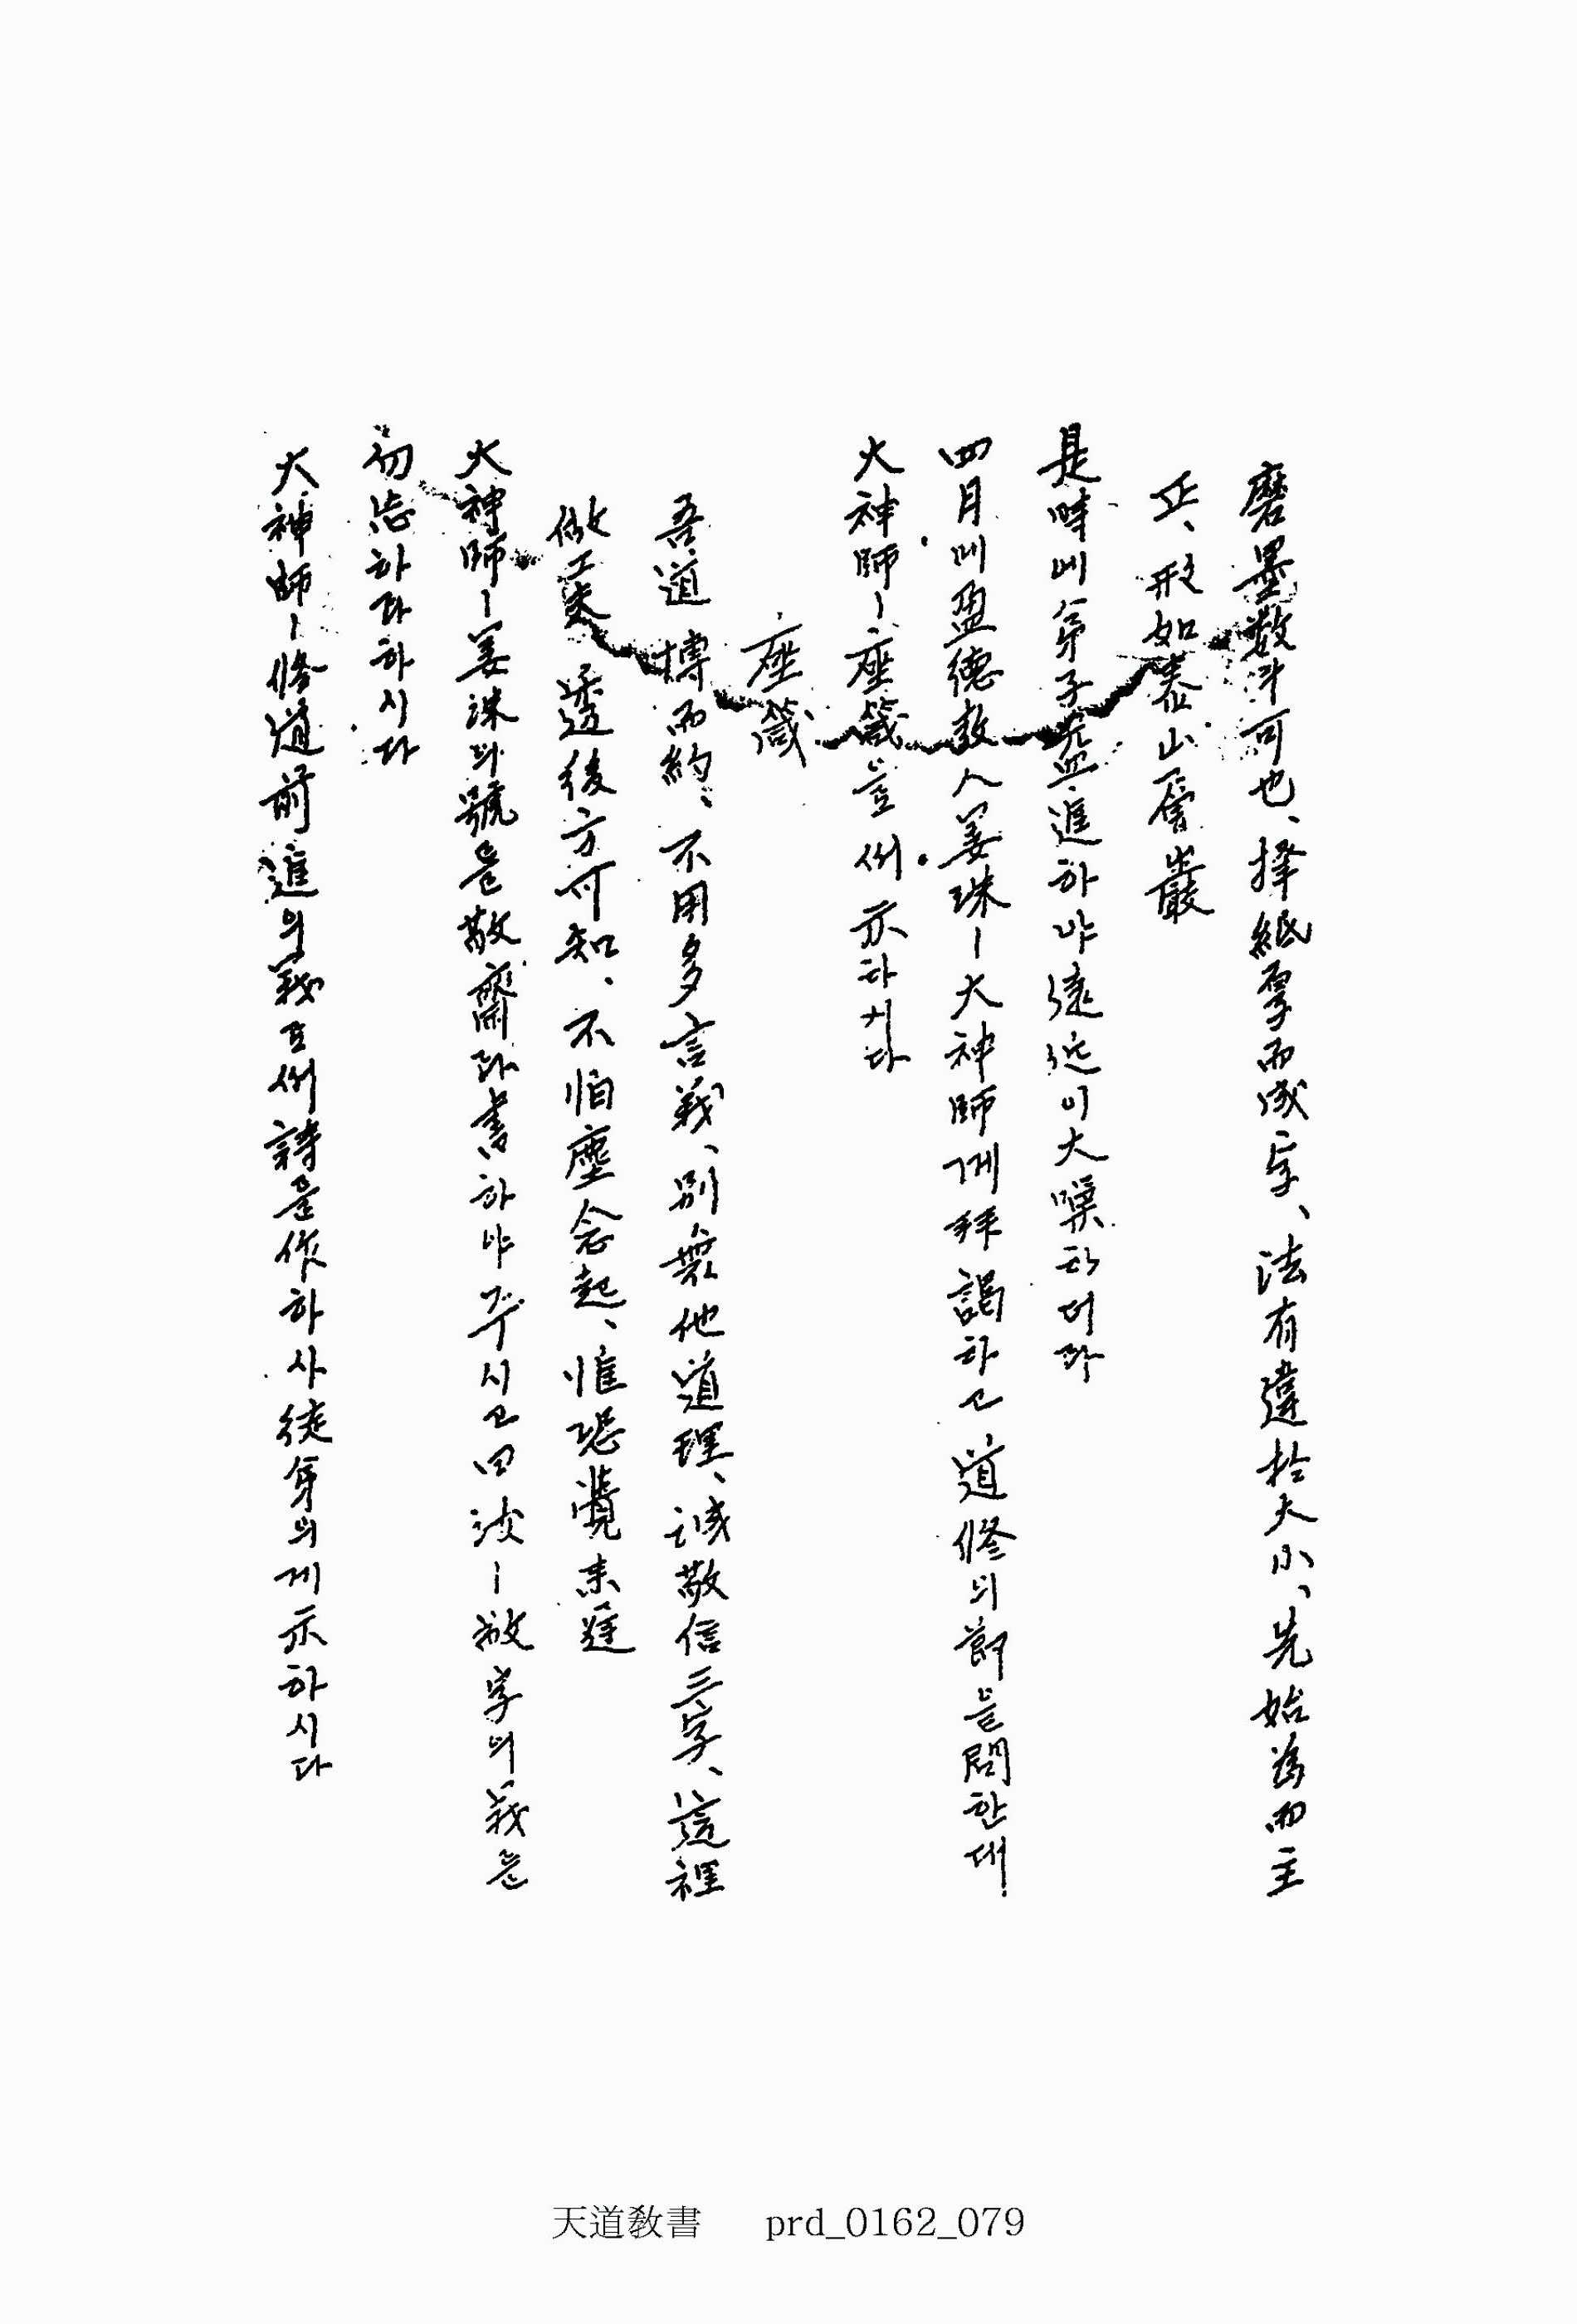 磨墨数斗可也、择紙厚而成字、法有違於大小、先始爲而主
正、形如泰山層巖
是時에弟子益進하야遠近이大噪하더라
四月에盈德敎人姜珠ㅣ大神師께拜謁하고道修의節을問한대
大神師ㅣ座箴을例示하시다
座箴
吾道博而約、不用多言義、別無他道理、誠敬信三字、這裡
做工夫透後方可知、不怕塵念起、惟恐覺來遲
大神師ㅣ姜洙의號를敬齋라書하야주시고曰汝ㅣ敬字의義를
勿忘하라하시다
大神師ㅣ修道前進의義로例詩를作하사徒弟의게示하시다
天道敎書 prd_0162_079